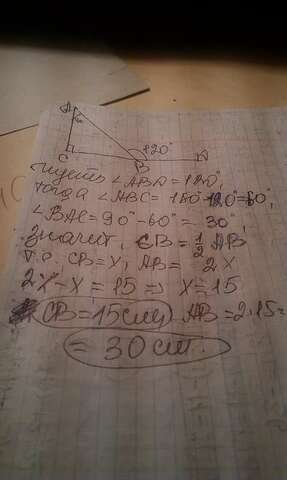 A
120°
C B D
пусть ∠ABD = 120°,
тогда ∠ABC = 180°-120°=60°,
∠BAC = 90°-60° = 30°,
значит, CB = 1/2 AB
т.о. CB = x, AB = 2x
2x - x = 15 => x = 15
CB = 15(см) AB = 2·15=
= 30 см.